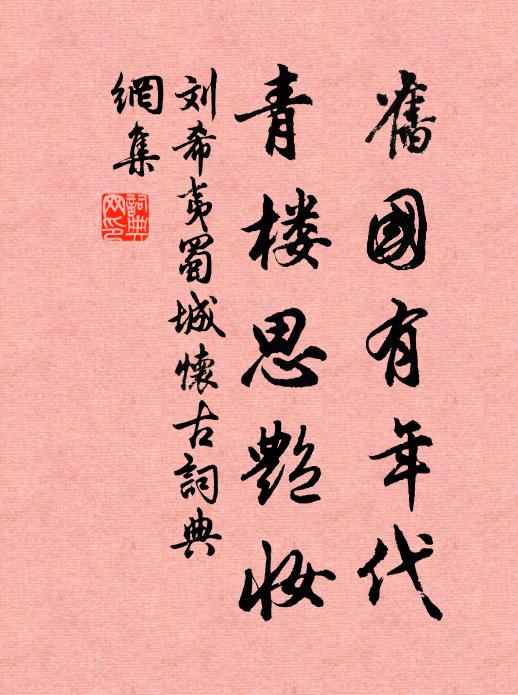 舊國有年代
青楼思艷妆
刘希夷蜀城懷古詞典
網集
詞典
网印